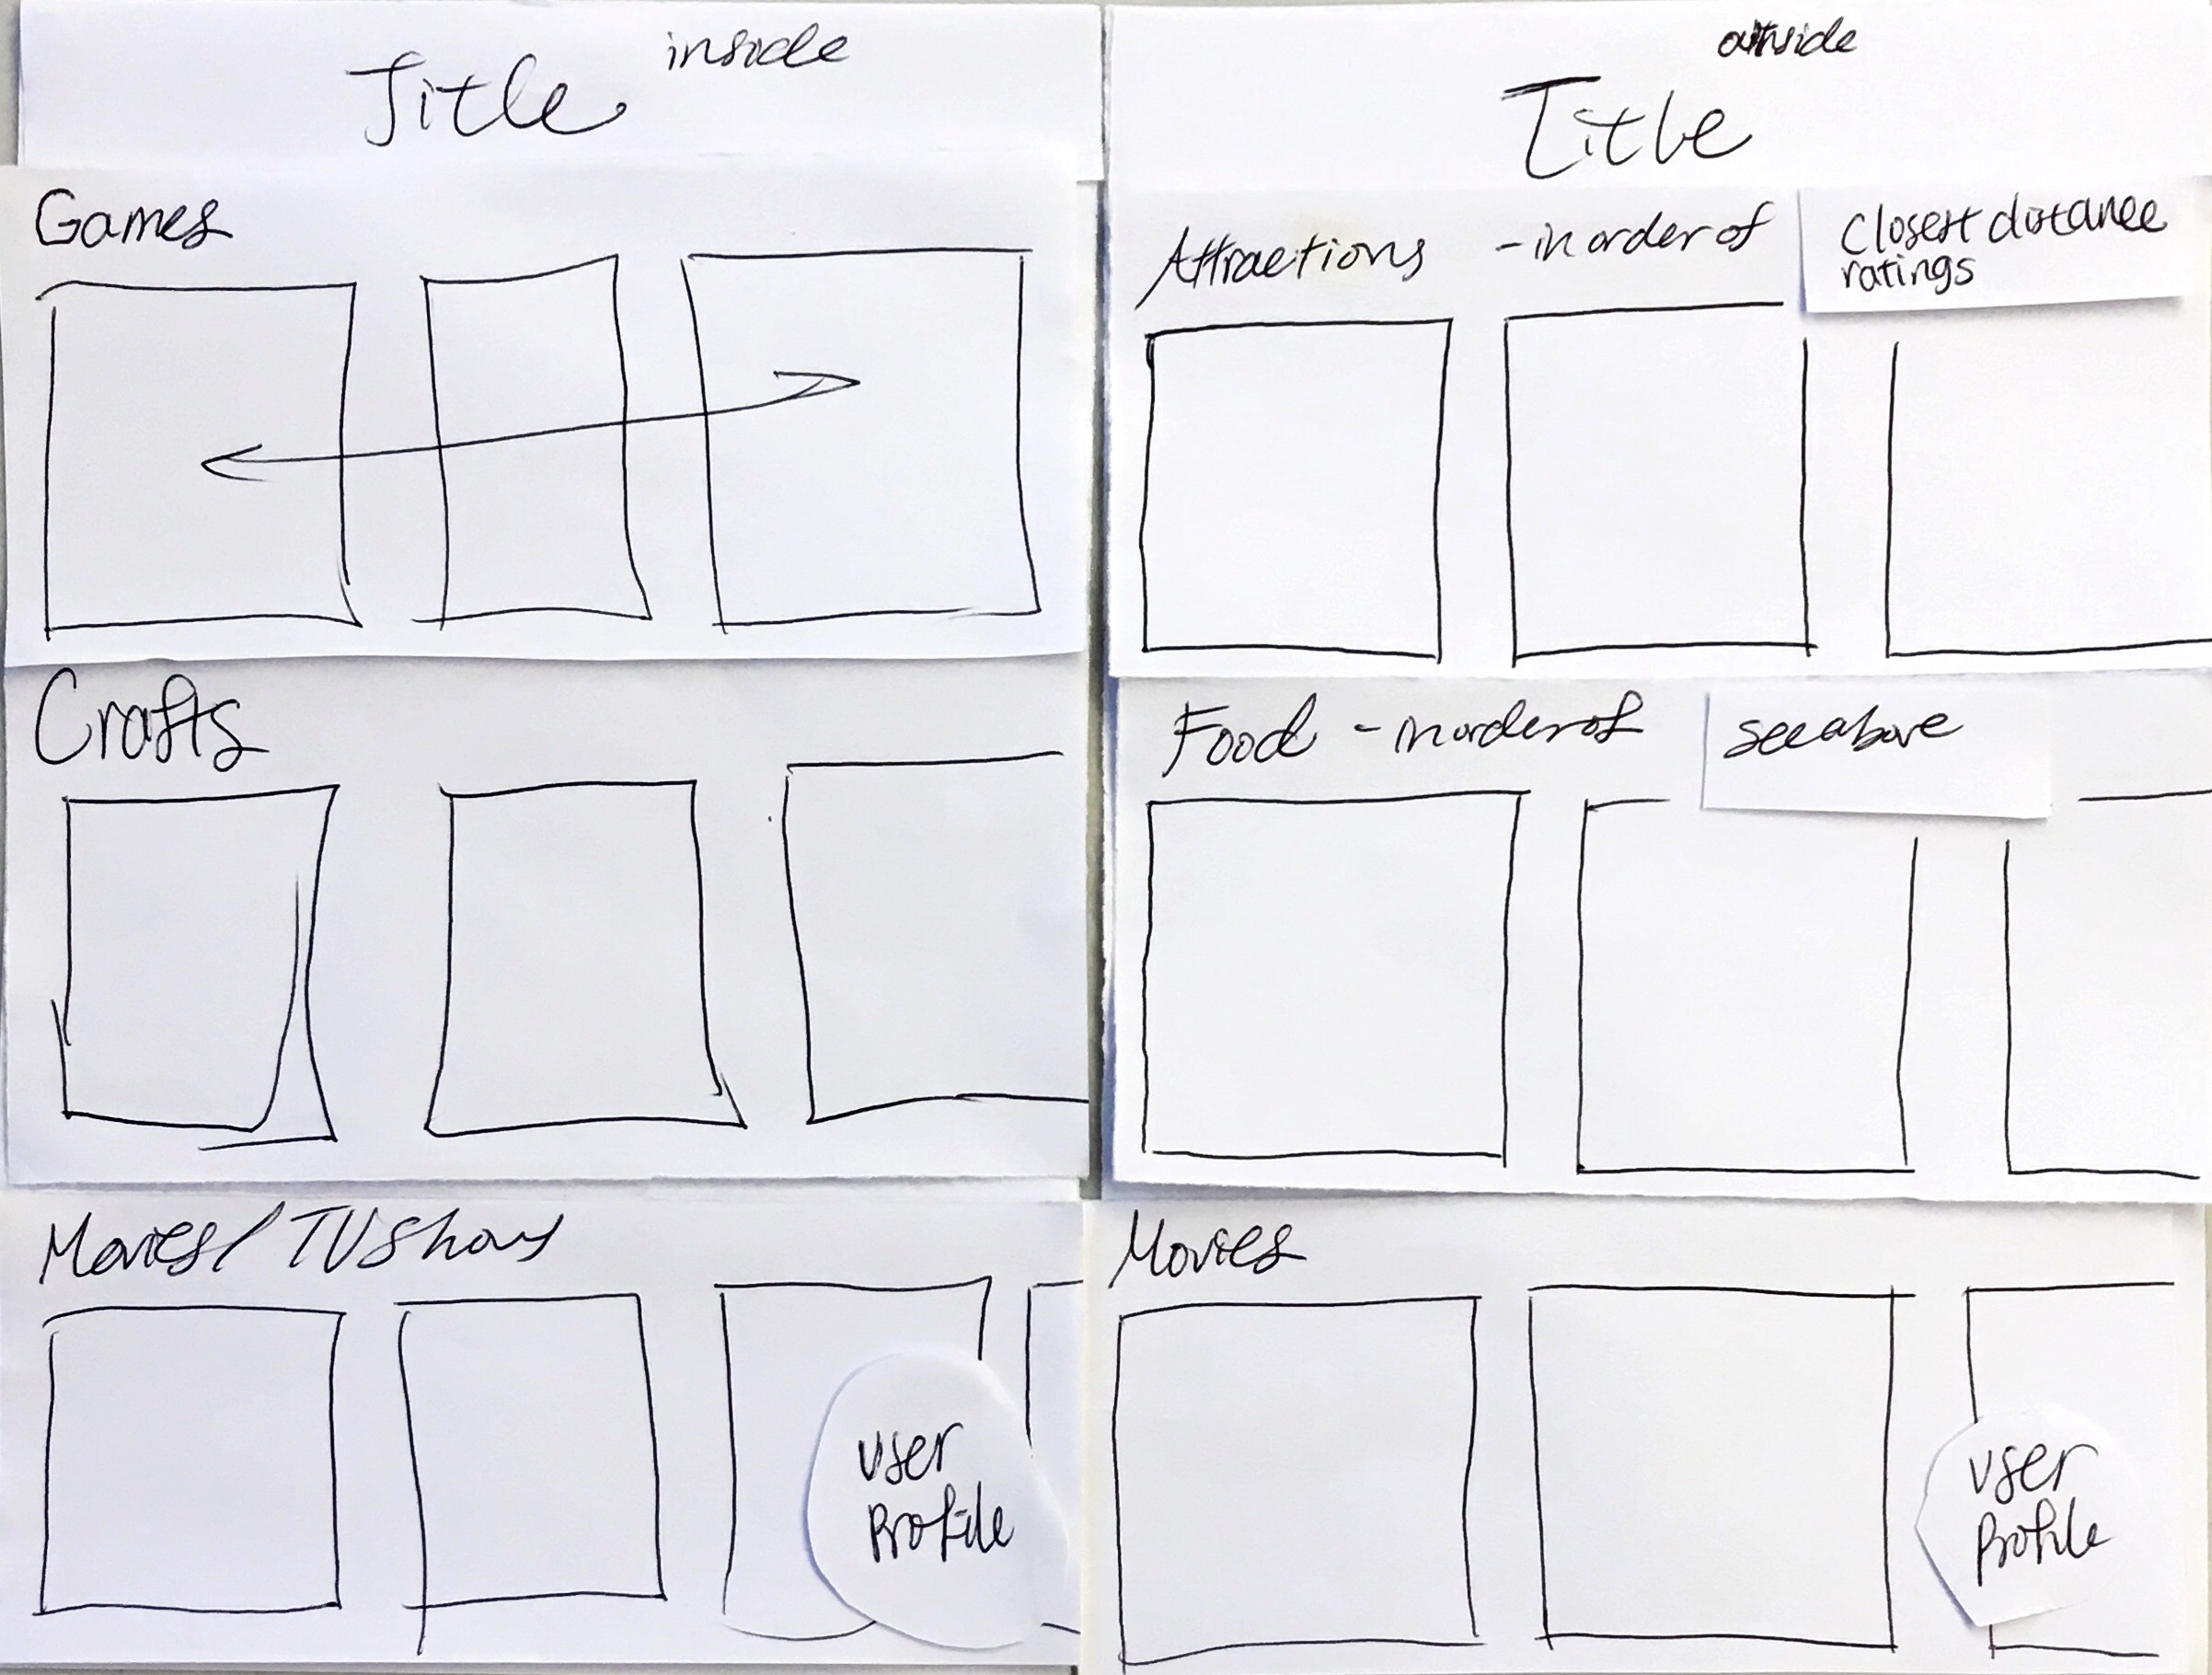 inside
Title
Games
Crafts
Movies/ TV Shows
User
Profile
outside
Title
Attractions - in order of
Closest distance
ratings
Food - in order of
see above
Movies
User
Profile